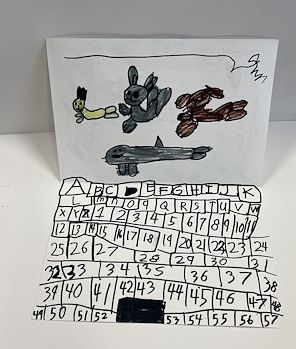 A B C D E F G H I J K
L m n O Q R S T U V W
X Y Z 1 2 3 4 5 6 7 8 9 10 11
12 13 14 15 16 17 18 19 20 21 22 23 24
25 26 27 28 29 30 3
32 33 34 35 36 37 38
39 40 41 42 43 44 45 46 47 48
49 50 51 52 53 54 55 56 57